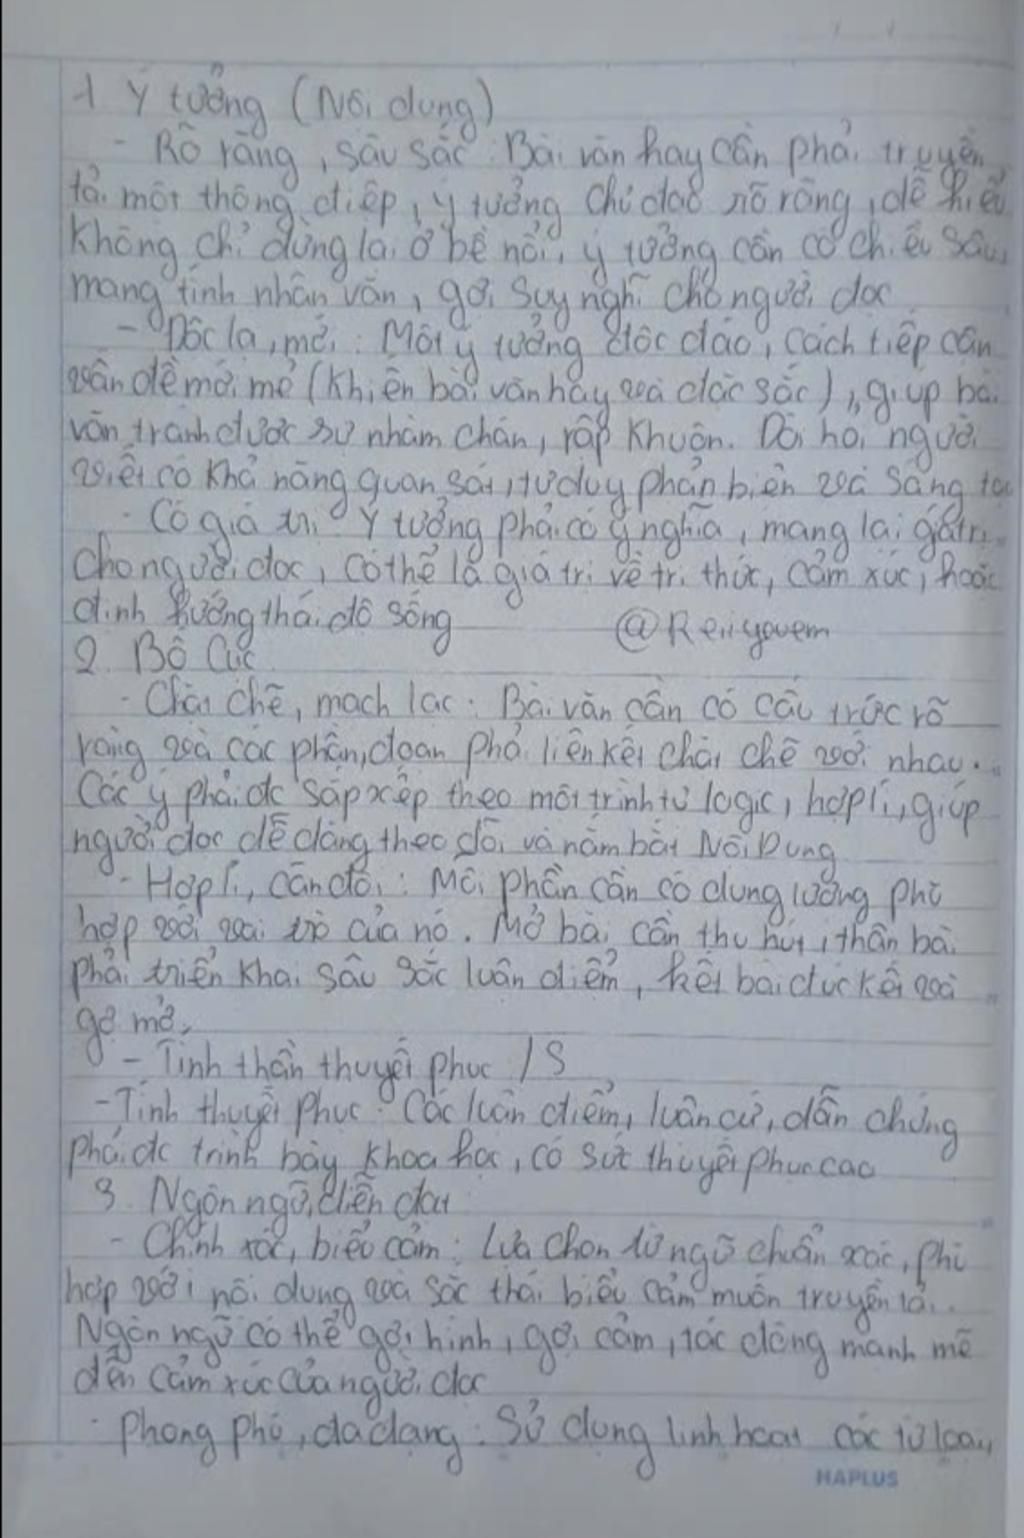 1 Ý tưởng (Nội dung)
- Rõ ràng, sâu sắc: Bài văn hay cần phải truyền
tải một thông điệp, ý tưởng chủ đạo rõ ràng, dễ hiểu
Không chỉ dừng lại ở bề nổi, ý tưởng cần có chiều sâu,
mang tính nhân văn, gợi suy nghĩ cho người đọc
- Độc lạ, mới: Một ý tưởng độc đáo, cách tiếp cận
vấn đề mới mẻ (khiến bài văn hay và đặc sắc), giúp bài
văn tránh được sự nhàm chán, rập khuôn. Đòi hỏi người
viết có khả năng quan sát, tư duy phản biện và sáng tạo
- Có giá trị Ý tưởng phải có ý nghĩa, mang lại giá trị
cho người đọc, có thể là giá trị về tri thức, cảm xúc, hoặc
định hướng thái độ sống @Reiiyouem
2. Bố cục
- Chặt chẽ, mạch lạc: Bài văn cần có cấu trúc rõ
ràng và các phần, đoạn phải liên kết chặt chẽ với nhau.
Các ý phải đc sắp xếp theo một trình tự logic, hợp lí, giúp
người đọc dễ dàng theo dõi và nắm bắt Nội Dung
- Hợp lí, cân đối: Mỗi phần cần có dung lượng phù
hợp với vai trò của nó. Mở bài cần thu hút, thân bài
phải triển khai sâu sắc luận điểm, kết bài đúc kết và
gợi mở.
- Tinh thần thuyết phục / S
- Tính thuyết phục: Các luận điểm, luận cứ, dẫn chứng
phải đc trình bày khoa học, có sức thuyết phục cao
3. Ngôn ngữ, diễn đạt
- Chính xác, biểu cảm: Lựa chọn từ ngữ chuẩn xác, phù
hợp với nội dung và sắc thái biểu cảm muốn truyền tải.
Ngôn ngữ có thể gợi hình, gợi cảm, tác động mạnh mẽ
đến cảm xúc của người đọc
- Phong phú, đa dạng: Sử dụng linh hoạt các từ loại,
HAPLUS